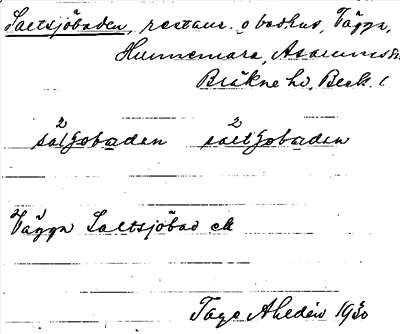 Saltsjöbaden, restaur. o badhus, Vägga,
Hunnemara, Asarums
Bräkne hd, Blek. l
2 2
sáltʃobaden saltʃobaden
Vägga Saltsjöbad
Tage Ahldén 1930